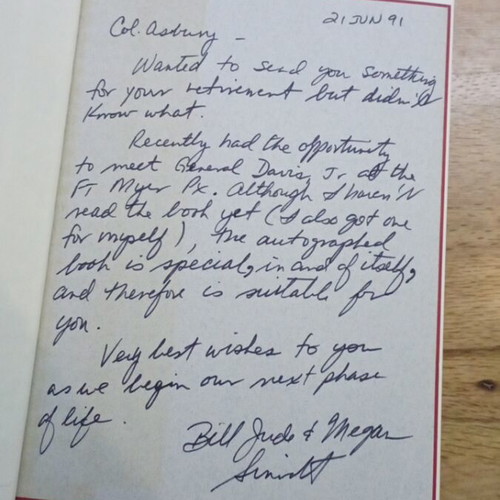 21 JUN 91
Col. Asbury -
Wanted to send you something
for your retirement but didn't
know what.
Recently had the opportunity
to meet General Davis, Jr at the
Ft Myer Px. Although I haven't
read the book yet (I also got one
for myself), the autographed
book is special, in and of itself,
and therefore is suitable for
you.
Very best wishes to you
as we begin our next phase
of life.
Bill Jude & Megan